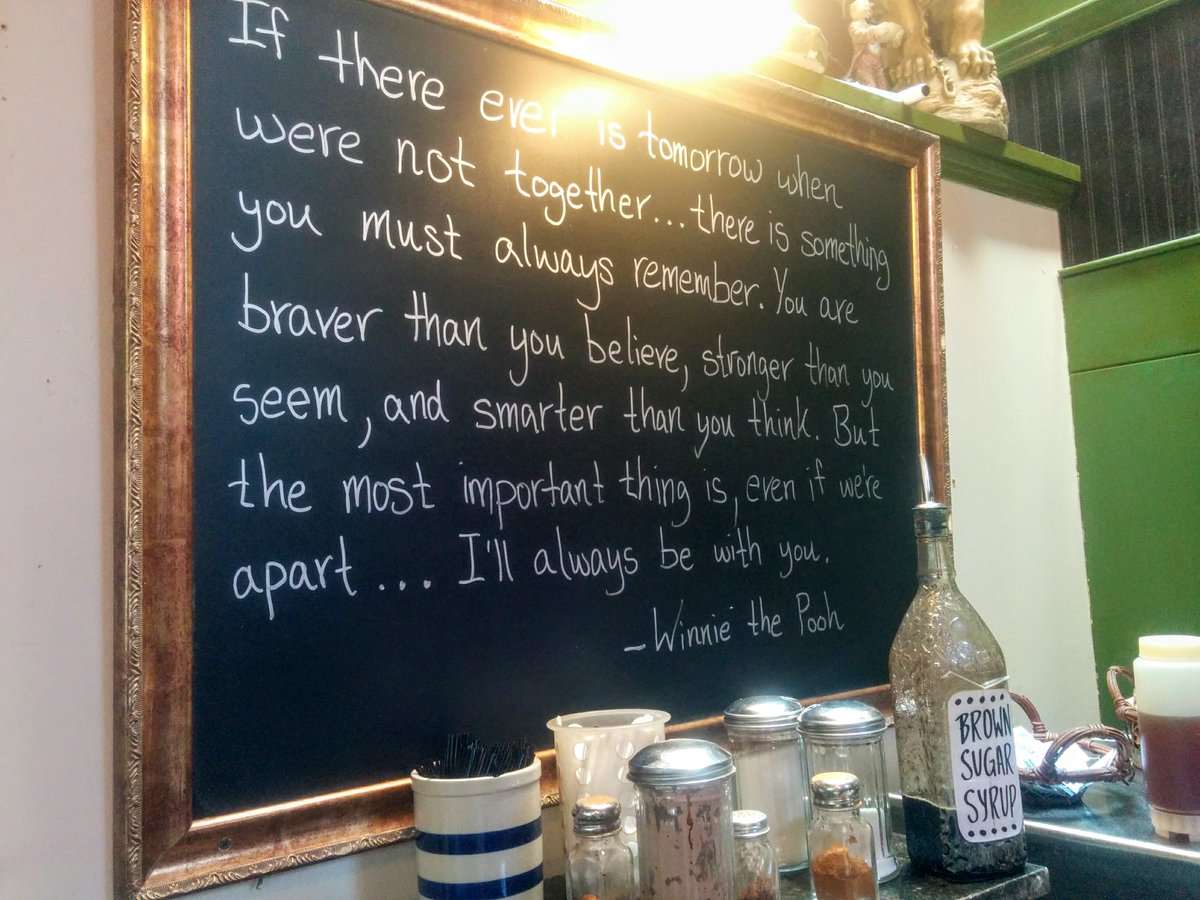 If there ever is tomorrow when
were not together... there is something
you must always remember. You are
braver than you believe, stronger than you
seem, and smarter than you think. But
the most important thing is, even if we're
apart... I'll always be with you.
-Winnie the Pooh
BROWN
SUGAR
SYRUP